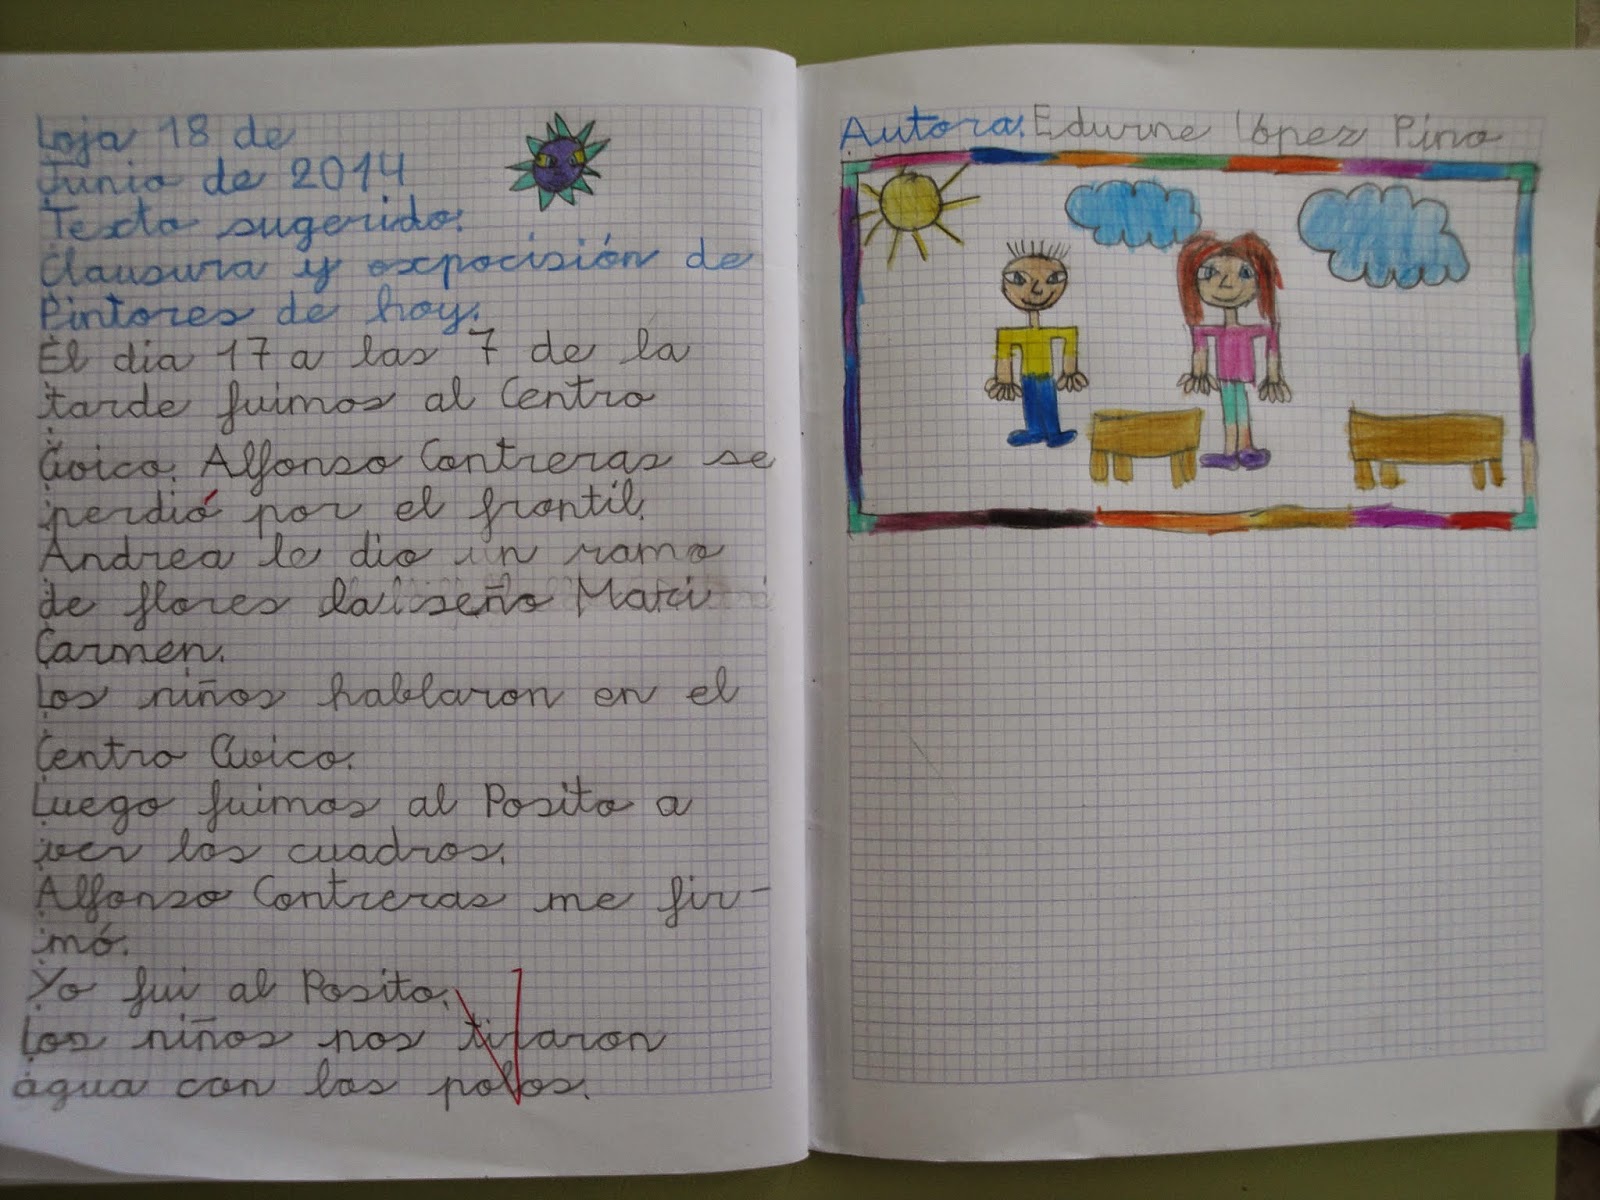 Loja 18 de
Junio de 2014
Texto sugerido:
Clausura y oxpocisión de
Pintores de hoy.
El dia 17 a las 7 de la
tarde fuimos al Centro
Civico. Alfonso Contreras se
perdió por el frontil.
Andrea le dio un ramo
de flores la seño Mari
Carmen.
Los niños hablaron en el
Centro Civico.
Luego fuimos al Posito a
ver los cuadros.
Alfonso Contreras me fir-
mó.
Yo fui al Posito.
Los niños nos tiraron
agua con los polos.
Autora: Edurne López Pino